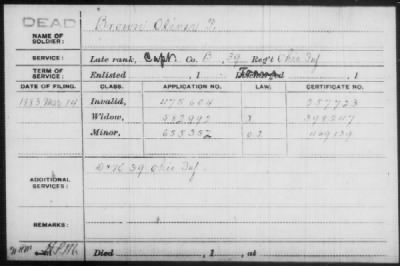 DEAD
NAME OF SOLDIER: Brown Oliver
SERVICE: Late rank, Capt. Co. B, 39 Reg't Ohio Inf
TERM OF SERVICE: Enlisted , 1 Discharged , 1
DATE OF FILING. CLASS. APPLICATION NO. LAW. CERTIFICATE NO.
1883 Mar 14 Invalid, 475604 257723
Widow, 582992
Minor, 655352
ADDITIONAL SERVICES: 39 Ohio Inf
REMARKS:
Died , 1 , at